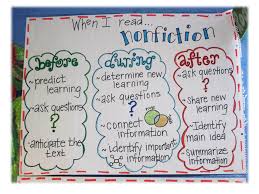 When I read...
nonfiction
before
~predict
learning
~ask questions
?
~anticipate the
text
during
~determine new
learning
~ask questions
?
~connect
information
~identify important
information
after
~ask questions
?
~Share new
learning
~Identify
main idea
~Summarize
information